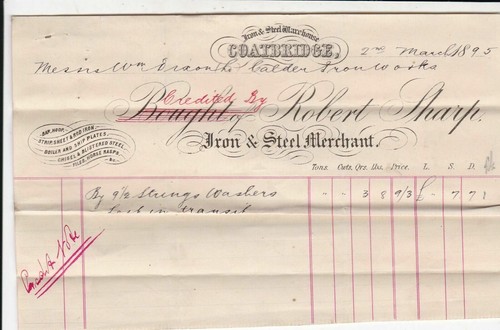 Iron & Steel Warehouse
COATBRIDGE, 2nd March 1895
Messrs Wm Dixon Ltd Calder Iron Works
Bought of Robert Sharp.
Credited By
Iron & Steel Merchant.
BAR, HOOP,
STRIP, SHEET & ROD IRON
BOILER AND SHIP PLATES,
CHISEL & BLISTERED STEEL
FILES, HORSE RASPS,
&c.
Tons. Cwts. Qrs. Lbs. Price. L. S. D.
By 9½ Strings Washers 3 8 9/3 £ - 7 7
lost in transit
Credit Note